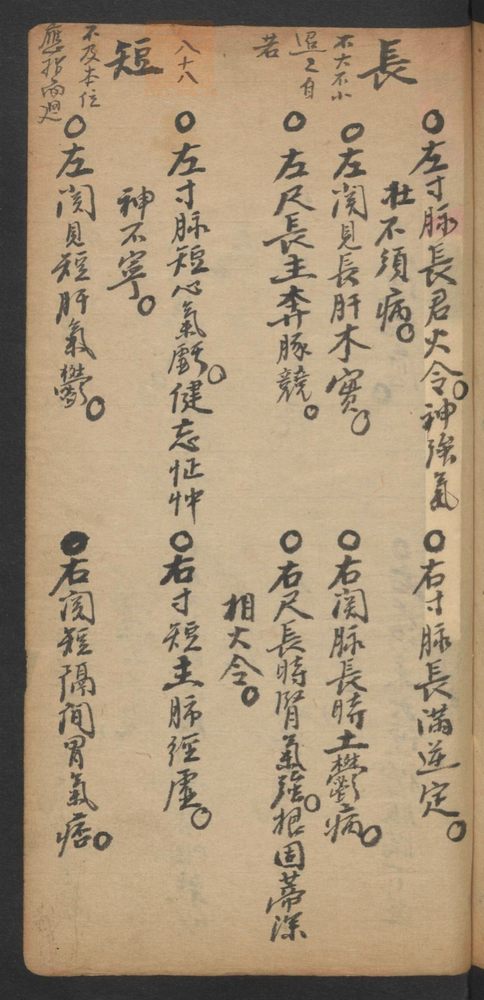 長
不大不小
迢迢自
若
○左寸脉長君火令。神強氣
壮不須病。
○右寸脉長滿逆定。
○左関見長肝木实。
○右関脉長時土鬱病。
○左尺長主奔豚競。
○右尺長時腎氣強。根固蒂深
相火令。
八十八
短
不及本位
應指而廻
○左寸脉短心氣虧。健忘怔忡
神不寧。
○右寸短主肺經虛。
○左関見短肝氣鬱。
●右関短隔間胃氣痞。